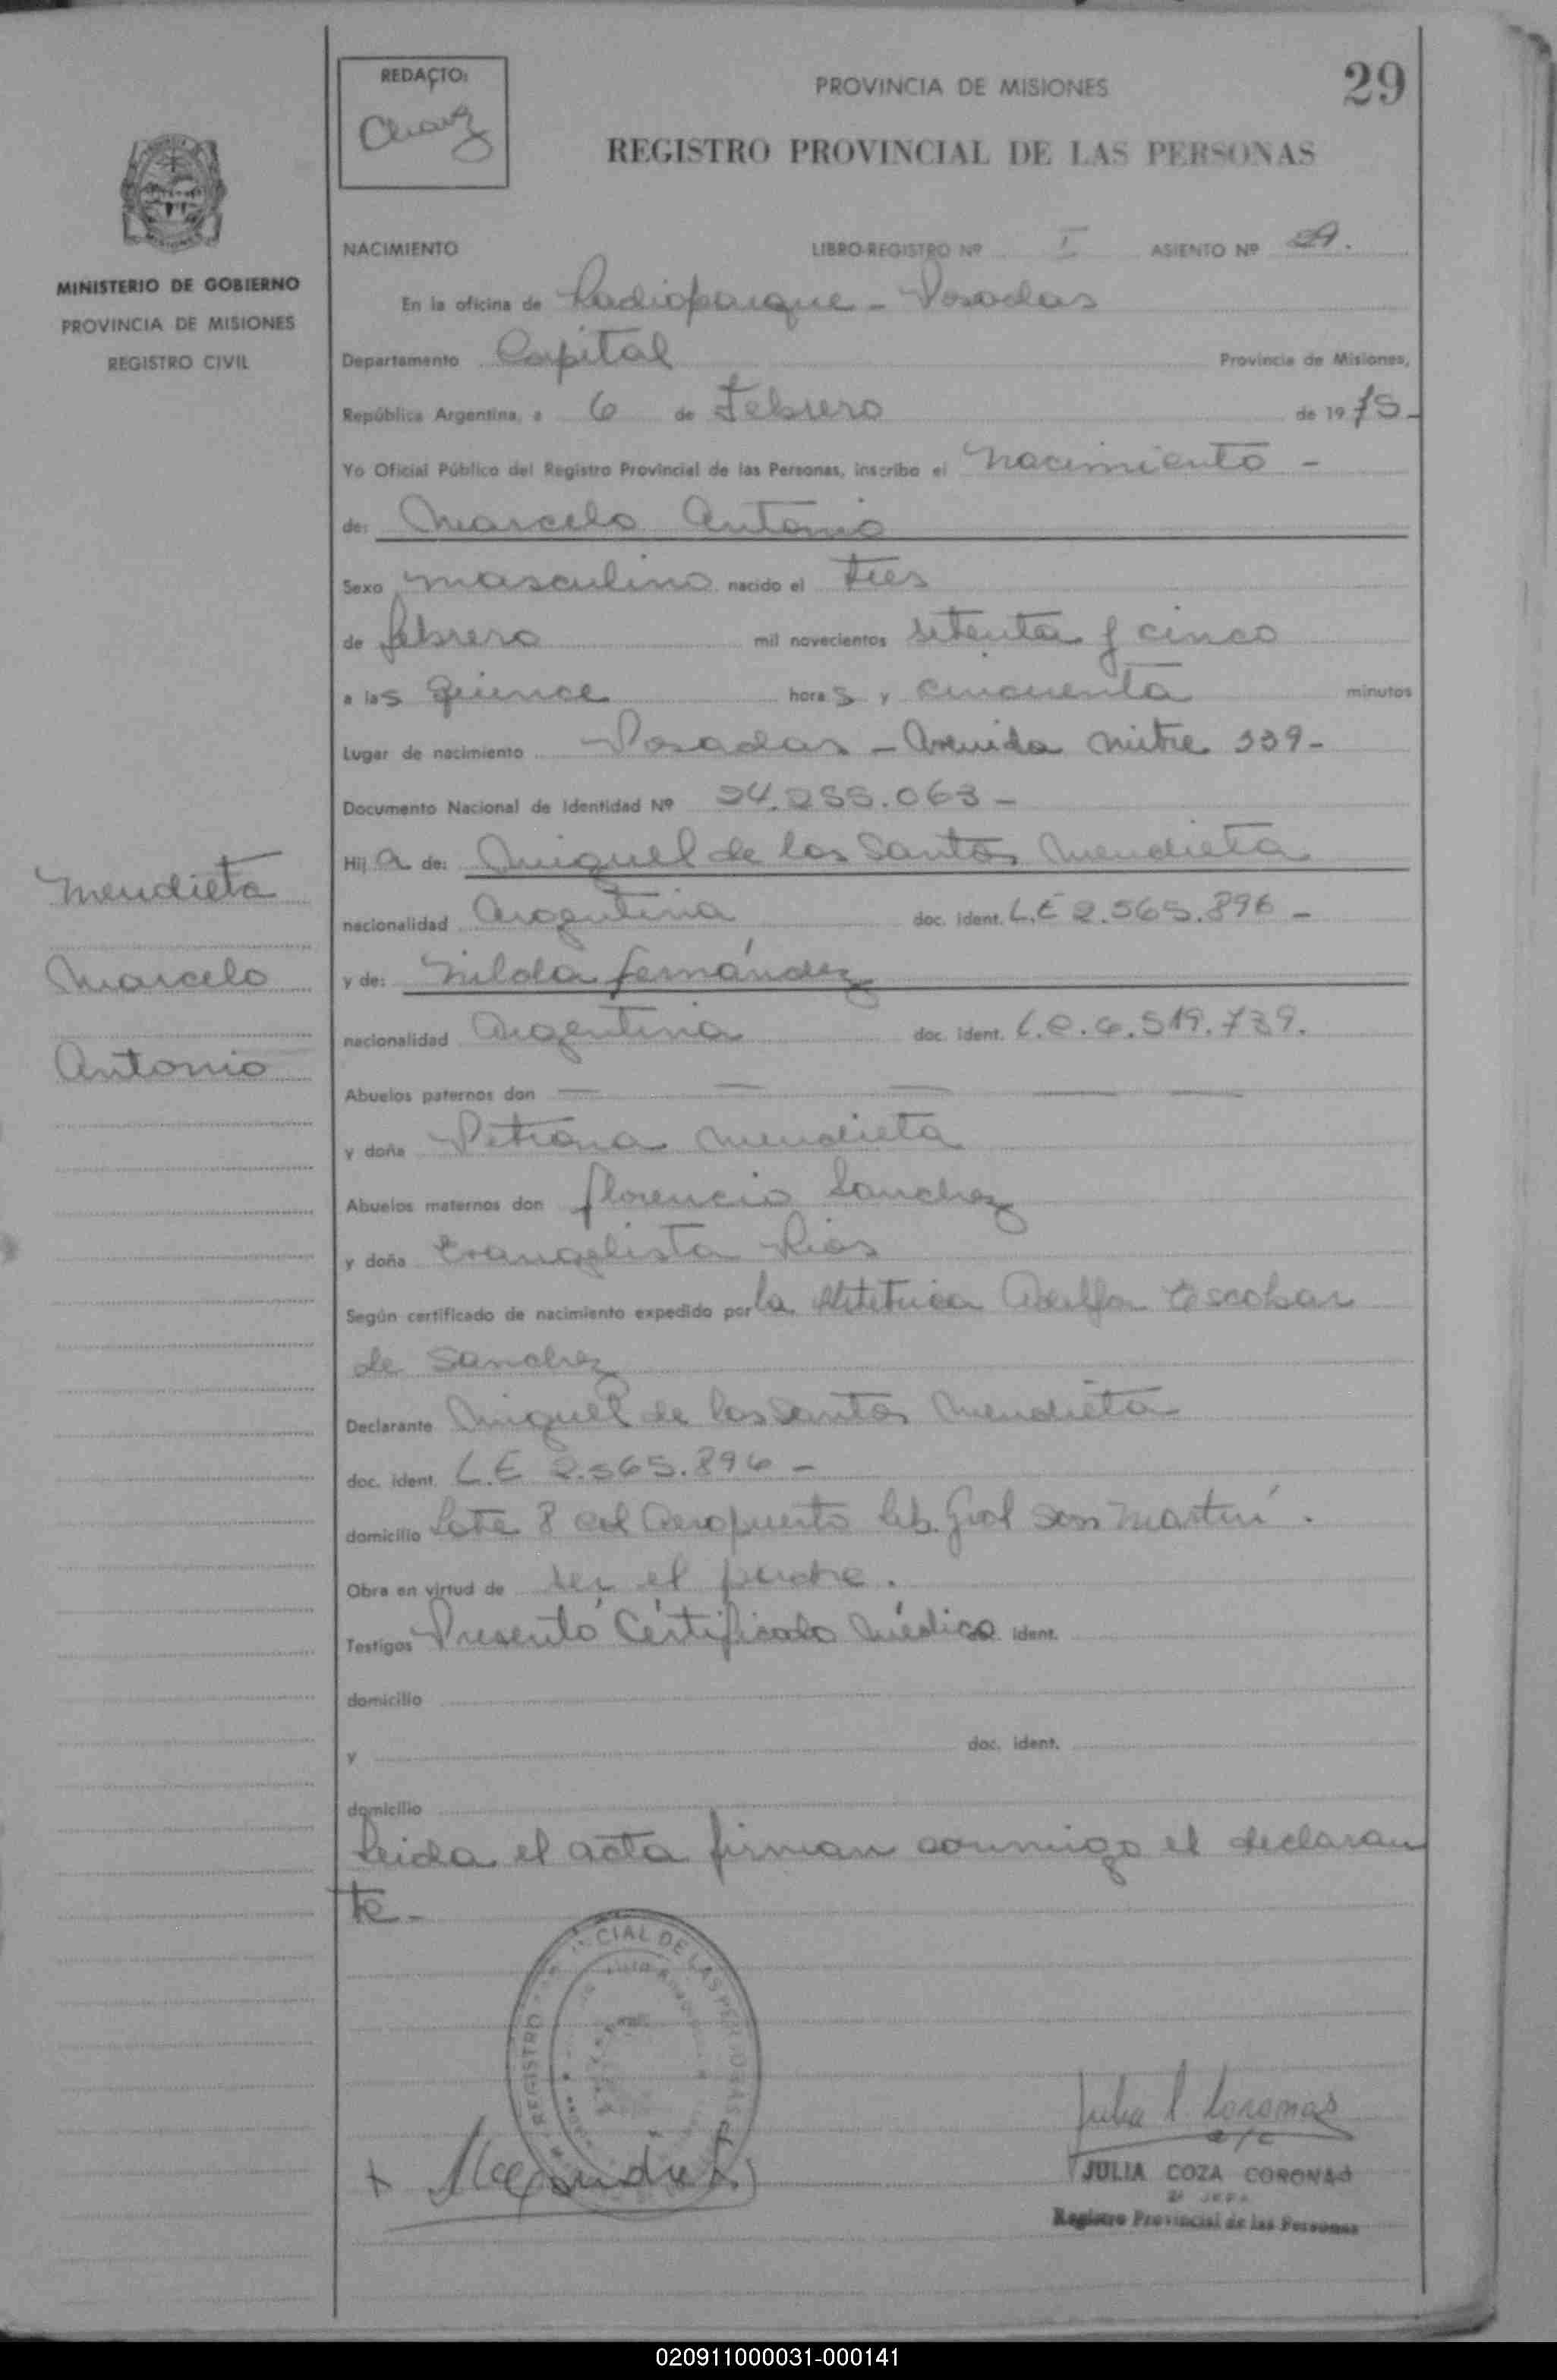 REDACTO:
Chavez
PROVINCIA DE MISIONES
29
REGISTRO PROVINCIAL DE LAS PERSONAS
MINISTERIO DE GOBIERNO
PROVINCIA DE MISIONES
REGISTRO CIVIL
NACIMIENTO LIBRO-REGISTRO Nº I ASIENTO Nº 29.
En la oficina de Radioparque - Posadas
Departamento Capital Provincia de Misiones,
República Argentina, a 6 de Febrero de 1975-
Yo Oficial Público del Registro Provincial de las Personas, inscribo el nacimiento -
de: Marcelo Antonio
Sexo masculino nacido el tres
de febrero mil novecientos setenta y cinco
a las quince horas y cincuenta minutos
Lugar de nacimiento Posadas - Avenida Mitre 339-
Documento Nacional de Identidad Nº 24.255.063-
Hij o de: Miguel de los Santos Mendieta
nacionalidad Argentina doc. ident. L.E 2.565.896-
y de: Nilda Fernández
nacionalidad Argentina doc. ident. L.C. 6.519.739.
Abuelos paternos don — — — — —
y doña Petrona Mendieta
Abuelos maternos don Florencio Sanchez
y doña Evangelista Rios
Según certificado de nacimiento expedido por la Obstetrica Adelfa Escobar
de Sanchez
Declarante Miguel de los Santos Mendieta
doc. ident. L.E 2.565.896-
domicilio Lote 8 col Aeropuerto Lib. Gral San Martín.
Obra en virtud de ser el padre.
Testigos Presentó Certificado Médico ident.
domicilio
y doc. ident.
domicilio
Leida el acta firman conmigo el declaran
te-
Mendieta
Marcelo
Antonio
REGISTRO CIAL DE LAS PERSONAS
Julia C. Coronas
a/c
JULIA COZA CORONAS
2ª JEFA
Registro Provincial de las Personas
020911000031-000141